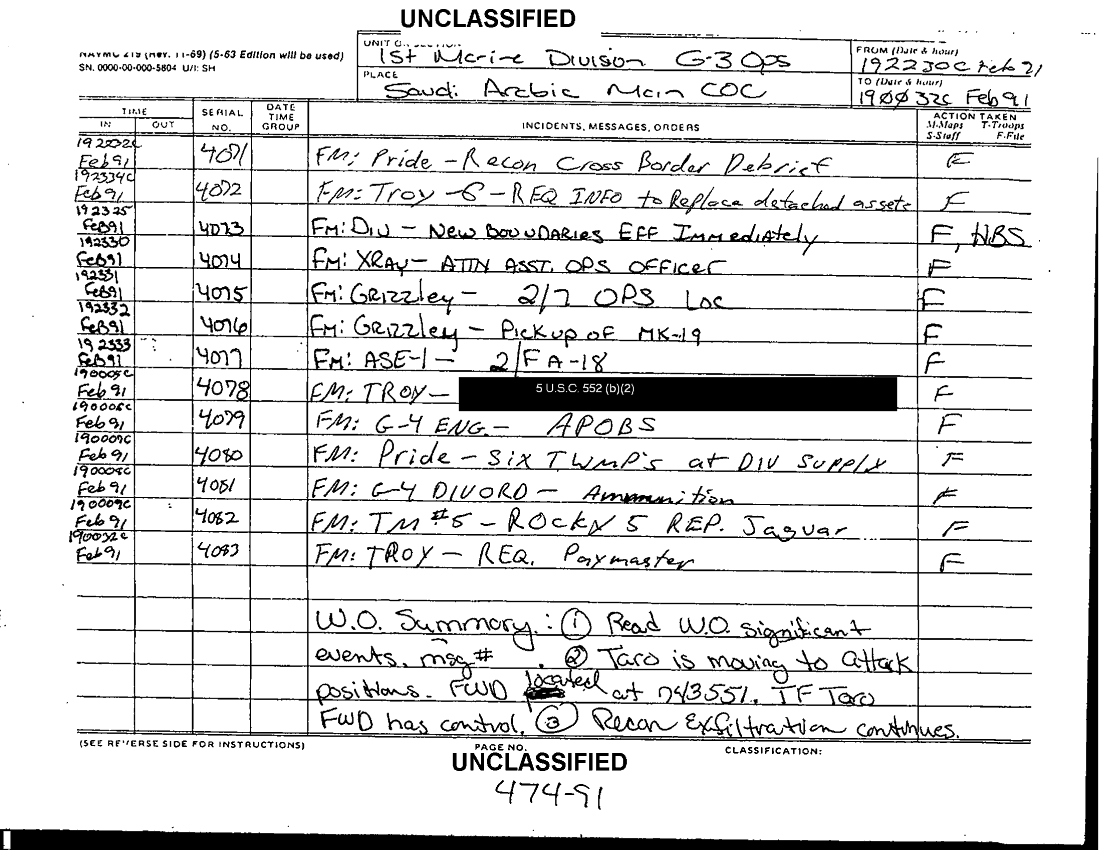 UNCLASSIFIED
NAVMC 219 (Rev. 11-69) (5-63 Edition will be used)
SN. 0000-00-000-5804 U/I: SH
UNIT OR SECTION
1st Marine Division G-3 Ops
FROM (Date & hour)
192230C Feb 91
PLACE
Saudi Arabia Main COC
TO (Date & hour)
190032C Feb 91
TIME
IN OUT
SERIAL NO.
DATE TIME GROUP
INCIDENTS, MESSAGES, ORDERS
ACTION TAKEN
M-Maps T-Troops
S-Staff F-File
Feb 91 4071 FM: Pride - Recon Cross Border Debrief F
192334C Feb 91 4072 FM: Troy -6 - REQ INFO to Replace detached assets F
192325 Feb 91 4073 FM: DIV - New Boundaries EFF Immediately F, NBS
192330 Feb 91 4074 FM: XRAY - ATTN ASST. OPS OFFICER F
192331 Feb 91 4075 FM: Grizzley - 2/7 OPS Loc F
192332 Feb 91 4076 FM: Grizzley - Pickup of MK-19 F
192333 Feb 91 4077 FM: ASE-1 - 2/FA-18 F
190005C Feb 91 4078 FM: TROY - 5 U.S.C. 552 (b)(2) F
190006C Feb 91 4079 FM: G-4 ENG. - APOBS F
190007C Feb 91 4080 FM: Pride - Six TWMP's at DIV Supply F
190008C Feb 91 4081 FM: G-4 DIVORD - Ammunition F
190009C Feb 91 4082 FM: TM #5 - ROCKY 5 REP. Jaguar F
190032C Feb 91 4083 FM: TROY - REQ. Paymaster F
W.O. Summary: ① Read W.O. significant
events, msg # . ② Taro is moving to attack
positions. FWD located at 743551. TF Taro
FWD has control. ③ Recon Exfiltration continues.
(SEE REVERSE SIDE FOR INSTRUCTIONS)
PAGE NO.
CLASSIFICATION:
UNCLASSIFIED
474-91